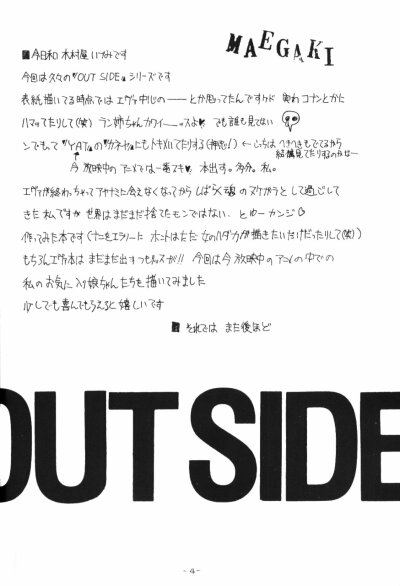 MAEGAKI
■今日和 木村屋 いづみです
今回は久々の『OUT SIDE』シリーズです
表紙描いてる時点では エヴァ中心の——とか思ってたんですケド 実わ コナンとかに
ハマってたりして(笑) ラン姉ちゃんカワイーーッスよ♥ でも誰も見てない
ンでもって『YAT』の『カネア』にもトキメいてたりする ←こっちは
結構見てたりするのかなー
今 放映中のアニメでは一番スキ♥ 本出す。多分。私。
エヴァが終わっちゃってアヤナミに会えなくなってから しばらく魂のヌケガラとして過ごして
きた私ですが 世界はまだまだ捨てたモンではない、とゆーカンジ
作ってみた本です(ナニをエラソーに ホントはただ女のハダカが描きたいだけだったりして(笑))
もちろんエヴァ本は まだまだ出すっもりっスが!! 今回は今放映中のアニメの中での
私のお気に入り娘ちゃんたちを描いてみました
少しでも喜んでもらえると嬉しいです
■それでは また後ほど
OUT SIDE
-4-